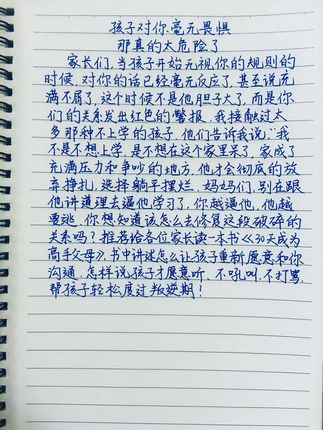 孩子对你毫无畏惧
那真的太危险了
家长们,当孩子开始无视你的规则的
时候,对你的话已经毫无反应了,甚至说充
满不屑了,这个时候不是他胆子大了,而是你
们的关系发出红色的警报,我接触过太
多那种不上学的孩子,他们告诉我说:"我
不是不想上学,是不想在这个家里呆了,家成了
充满压力和争吵的地方,他才会彻底的放
弃挣扎,选择躺平摆烂,妈妈们,别在跟
他讲道理去逼他学习了,你越逼他,他越
要逃,你想知道该怎么去修复这段破碎的
关系吗?推荐给各位家长读一本书《30天成为
高手父母》,书中讲述怎么让孩子重新愿意和你
沟通,怎样说孩子才愿意听,不吼叫,不打骂,
帮孩子轻松度过叛逆期!